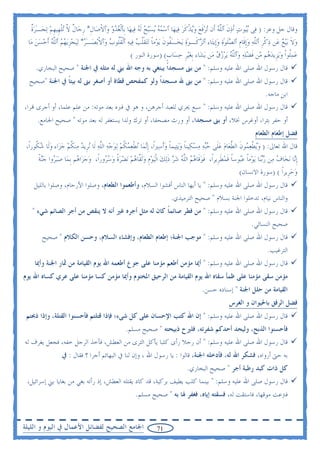 وقال جل وعز: { فِي بُيُوتٍ أَذِنَ ٱللَّهُ أَن تُرْفَعَ وَيُذْكَرَ فِيهَا ٱسْمُهُ يُسَبِّحُ لَهُ فِيهَا بِٱلْغُدُوِّ وَٱلآصَالِ * رِجَالٌ لاَّ تُلْهِيهِمْ تِجَارَةٌ
وَلاَ بَيْعٌ عَن ذِكْرِ ٱللَّهِ وَإِقَامِ ٱلصَّلاَةِ وَإِيتَآءِ ٱلزَّكَـاةِ يَخَافُونَ يَوْماً تَتَقَلَّبُ فِيهِ ٱلْقُلُوبُ وَٱلأَبْصَارُ * لِيَجْزِيَهُمُ ٱللَّهُ أَحْسَنَ مَا
عَمِلُواْ وَيَزِيدَهُمْ مِّن فَضْلِهِ وَٱللَّهُ يَرْزُقُ مَن يَشَآءُ بِغَيْرِ حِسَابٍ} (سورة النور )
✓ قال رسول الله صلى الله عليه وسلم: " من بنى مسجدا يبتغي به وجه الله بنى له مثله في الجنة " صحيح البخاري.
✓ قال رسول الله صلى الله عليه وسلم: " من بنى لله مسجداً ولو كمفحص قطاة أو أصغر بنى له بيتاً في الجنة "صحيح
ابن ماجه.
✓ قال رسول الله صلى الله عليه وسلم: " سبع يجري للعبد أجرهن، و هو في قبره بعد موته: من علم علما، أو أجرى نهرا،
أو حفر بئرا، أو غرس نخلا، أو بنى مسجدا، أو ورث مصحفا، أو ترك ولدا يستغفر له بعد موته " صحيح الجامع.
فضل إطعام الطعام
قال الله تعالى: { وَيُطْعِمُونَ ٱلطَّعَامَ عَلَىٰ حُبِّهِ مِسْكِيناً وَيَتِيماً وَأَسِيراً* إِنَّمَا نُطْعِمُكُمْ لِوَجْهِ ٱللَّهِ لاَ نُرِيدُ مِنكُمْ جَزَآءً وَلاَ شُكُوراً *
إِنَّا نَخَافُ مِن رَّبِّنَا يَوْماً عَبُوساً قَمْطَرِيراً * فَوَقَاهُمُ ٱللَّهُ شَرَّ ذَلِكَ ٱلْيَومِ وَلَقَّاهُمْ نَضْرَةً وَسُرُوراً * وَجَزَاهُمْ بِمَا صَبَرُواْ جَنَّةً
وَحَرِيراً } (سورة الانسان)
✓ قال رسول الله صلى الله عليه وسلم: " يا أيها الناس أفشوا السلام، وأطعموا الطعام، وصلوا الأرحام، وصلوا بالليل
والناس نيام، تدخلوا الجنة بسلام " صحيح الترميدي.
✓ قال رسول الله صلى الله عليه وسلم: " من فطر صائماً كان له مثل أجره غير أنه لا ينقص من أجر الصائم شيء "
صحيح النسائي.
✓ قال رسول الله صلى الله عليه وسلم: " موجب الجنة؛ إطعام الطعام، وإفشاء السلام، وحسن الكلام " صحيح
الترغيب.
✓ قال رسول الله صلى الله عليه وسلم: " أيما مؤمن أطعم مؤمنا على جوع أطعمه الله يوم القيامة من ثمار الجنة وأيما
مؤمن سقي مؤمنا على ظمأ سقاه الله يوم القيامة من الرحيق المختوم وأيما مؤمن كسا مؤمنا على عري كساه الله يوم
القيامة من حلل الجنة " إسناده حسن.
فضل الرفق بالحيوان و الغرس
✓ قال رسول الله صلى الله عليه وسلم: " إن الله كتب الإحسان على كل شيء؛ فإذا قتلتم فأحسنوا القتلة، وإذا ذبحتم
فأحسنوا الذبح، وليحد أحدكم شفرته، فليرح ذبيحته " صحيح مسلم.
✓ قال رسول الله صلى الله عليه وسلم: " أن رجلا رأى كلبا يأكل الثرى من العطش، فأخذ الرجل خفه، فجعل يغرف له
به حتى أرواه، فشكر الله له، فأدخله الجنة. قالوا : يا رسول الله ، وإن لنا في البهائم أجرا ؟ فقال : في
كل ذات كبد رطبة أجر " صحيح البخاري.
✓ قال رسول الله صلى الله عليه وسلم: " بينما كلب يطيف بركية، قد كاد يقتله العطش، إذ رأته بغي من بغايا بني إسرائيل،
فنزعت موقها، فاستقت له، فسقته إياه، فغفر لها به " صحيح مسلم.
71
الجامع الصحيح لفضائل الأعمال في اليوم و الليلة